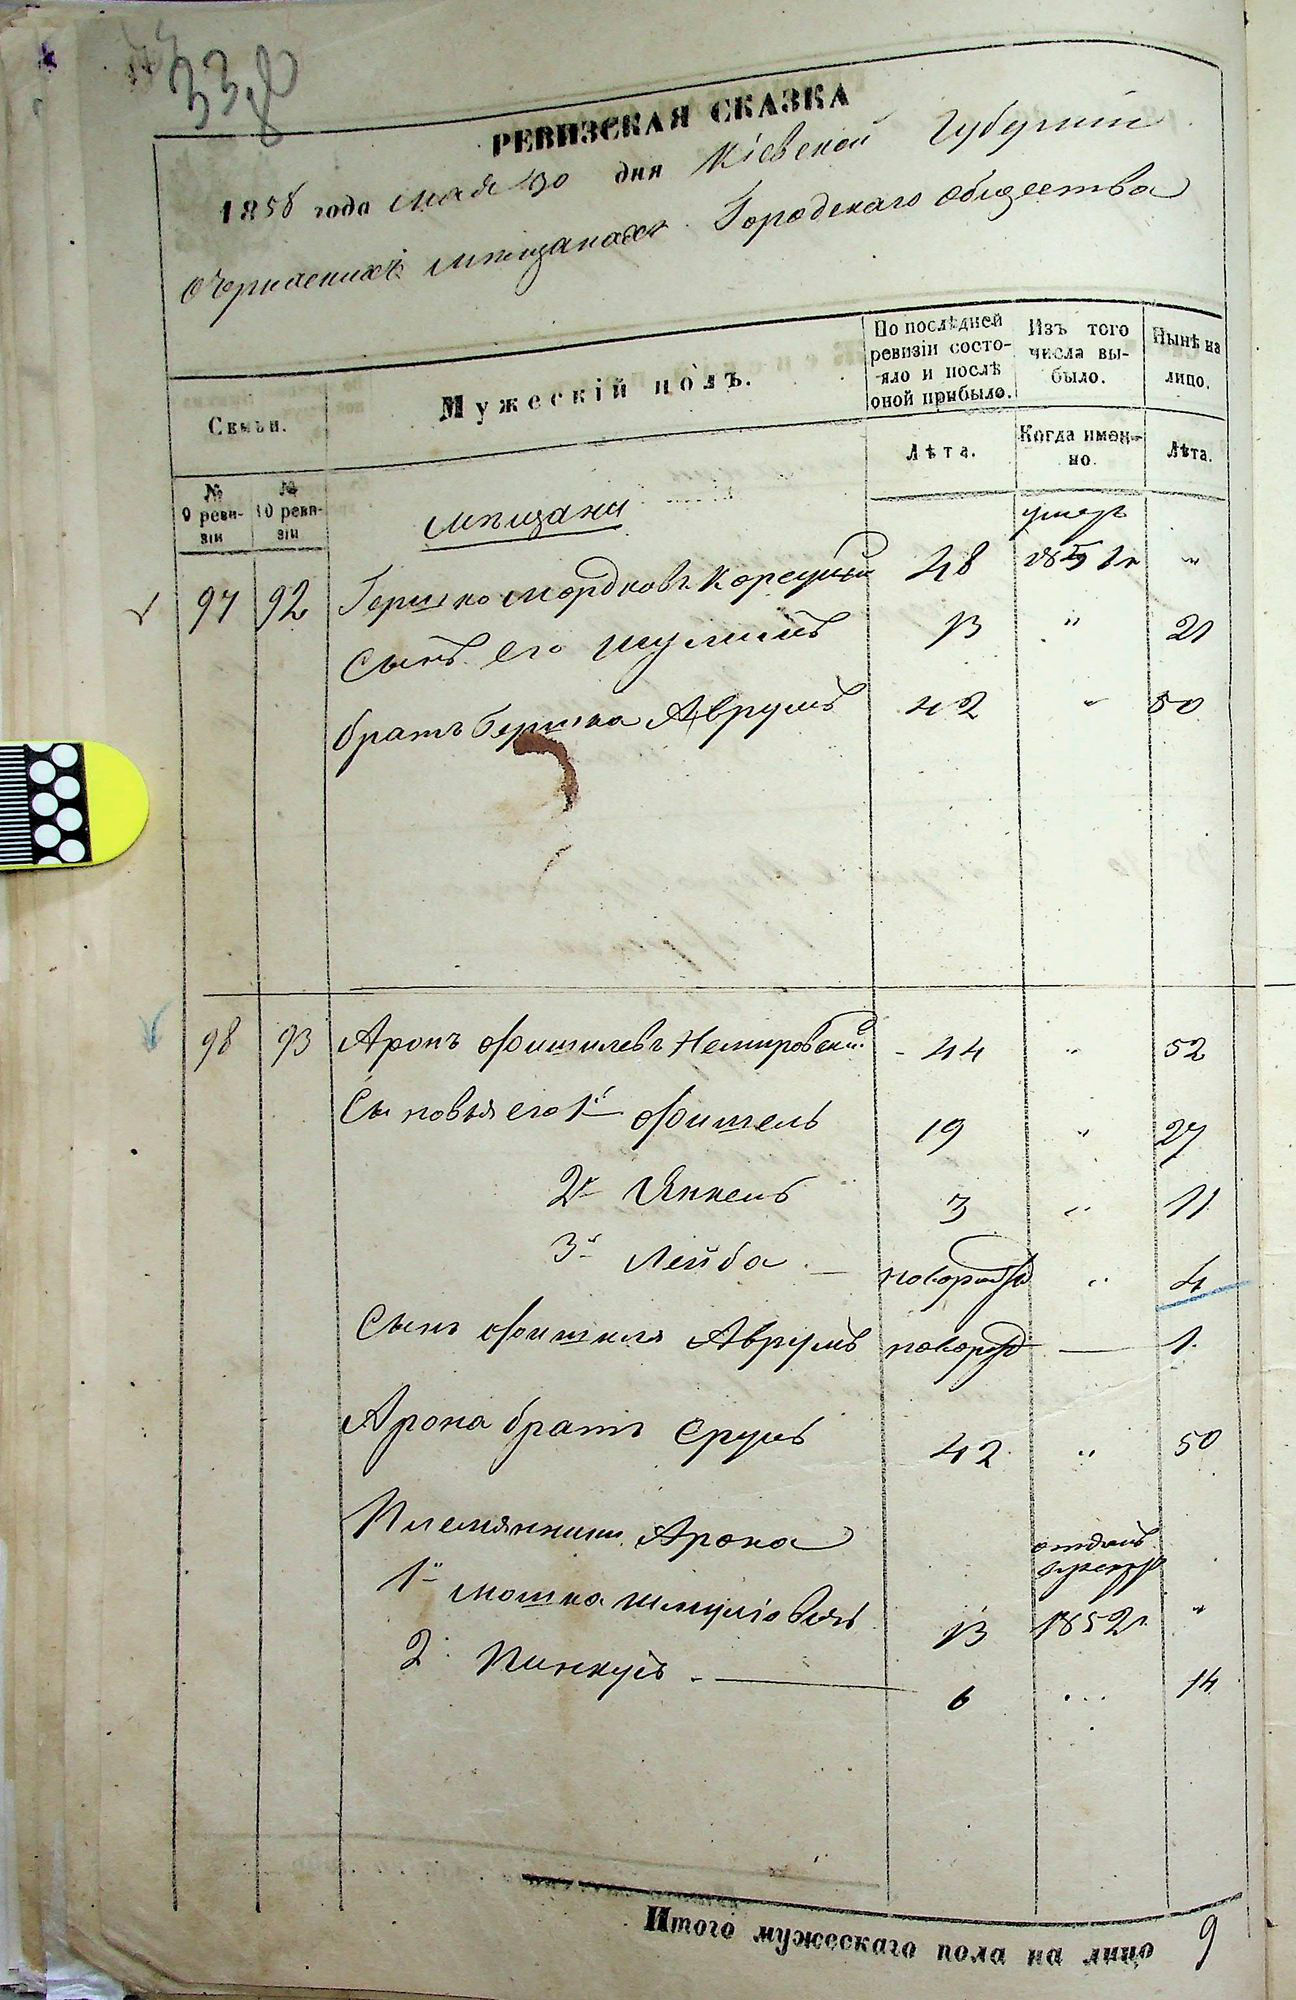 338
РЕВИЗСКАЯ СКАЗКА
1858 года мая 30 дня Кіевской Губерніи
Городскаго общества
Семьи.
Мужескій полъ.
По послѣдней ревизіи состояло и послѣ оной прибыло.
Изъ того числа выбыло.
Нынѣ на лицо.
Лѣта.
Когда именно.
Лѣта.
№ 9 ревизіи
№ 10 ревизіи
мѣщани
умеръ
97 92 Гершко Мордковъ Корецкий 48 185 г. "
Сынъ его Шулимъ 13 " 21
братъ Гершка Аврумъ 42 " 50
98 93 Аронъ Фишилевъ Немировский 44 " 52
Сыновья его 1й Фишель 19 " 27
2й Янкель 3 " 11
3й Лейба новорожд " 4
Сынъ Фишиля Аврумъ новорожд — 1
Арона братъ Срулъ 42 " 50
Племянники Арона
отданъ
1й Мошко Шмуліовичъ 13 1852г. "
2. Пинкусъ — 6 ... 14
Итого мужескаго пола на лицо 9